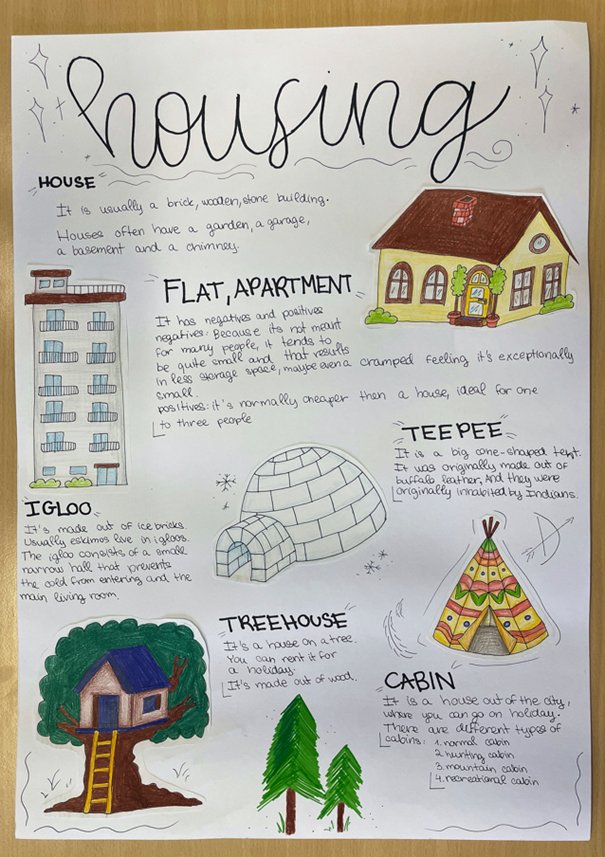 housing
HOUSE
It is usually a brick, wooden, stone building.
Houses often have a garden, a garage,
a basement and a chimney.
FLAT, APARTMENT
It has negatives and positives
negatives: Because its not meant
for many people, it tends to
be quite small and that results
in less storage space, maybe even a cramped feeling it's exceptionally
small.
positives: it's normally cheaper then a house, ideal for one
to three people
TEEPEE
It is a big cone-shaped tent.
It was originally made out of
buffalo leather, And they were
originally inhabited by Indians.
IGLOO
It's made out of ice bricks.
Usually eskimos live in igloos.
The igloo consists of a small
narrow hall that prevents
the cold from entering and the
main living room.
TREEHOUSE
It's a house on a tree.
You can rent it for
a holiday.
It's made out of wood.
CABIN
It is a house out of the city,
where you can go on holiday.
There are different types of
cabins: 1. normal cabin
2. hunting cabin
3. mountain cabin
4. recreational cabin